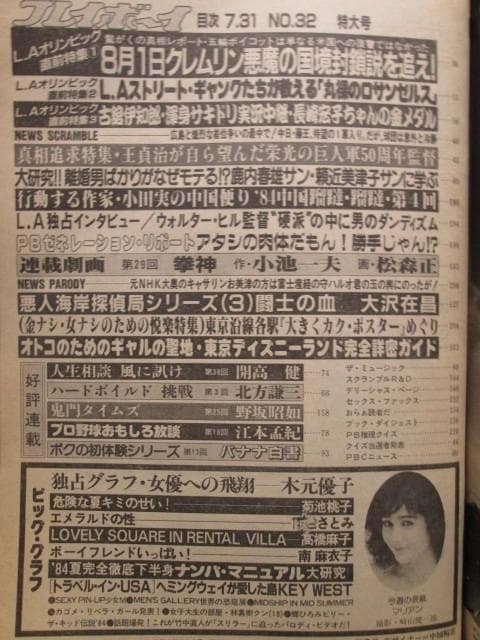 プレイボーイ
目次 7.31 NO.32 特大号
L.Aオリンピック直前特集1
8月1日クレムリン悪魔の国境封鎖説を追え!
L.Aオリンピック直前特集2
L.Aストリート・ギャングたちが教える「丸裸のロサンゼルス」
L.Aオリンピック直前特集3
古舘伊知郎・渾身サキドリ実況中継・長崎宏子ちゃんの金メダル
NEWS SCRAMBLE
真相追求特集・王貞治が自ら望んだ栄光の巨人軍50周年監督
大研究!!離婚男ばかりがなぜモテる!?鹿内春雄サン・頼近美津子サンに学ぶ
行動する作家・小田実の中国便り'84中国 第4回
L.A独占インタビュー/ウォルター・ヒル監督"硬派"の中に男のダンディズム
PBゼネレーション・リポート アタシの肉体だもん!勝手じゃん!?
連載劇画 第29回 拳神 作・小池一夫 画・松森正
NEWS PARODY
悪人海岸探偵局シリーズ(3)闘士の血 大沢在昌
(金ナシ・女ナシのための悦楽特集)東京沿線各駅「大きくカク・ポスター」めぐり
オトコのためのギャルの聖地・東京ディズニーランド完全詳密ガイド
好評連載
人生相談 風に訊け 第38回 開高 健 74
ハードボイルド 挑戦 第3回 北方謙三 66
鬼門タイムズ 第25回 野坂昭如 158
プロ野球おもしろ放談 第16回 江本孟紀 78
ボクの初体験シリーズ 第13回 バナナ白書 93
ザ・ミュージック
スクランブルR&D
デリーシャス・ページ
セックス・ファックス
おらんだ読者だ
ブック・ダイジェスト
PB推理クイズ
クイズ当選者発表
PBCニュース
ビッグ・グラフ
独占グラフ・女優への飛翔 木元優子
危険な夏キミのせい! 菊池桃子
エメラルドの性 さとみ
LOVELY SQUARE IN RENTAL VILLA 高橋麻子
ボーイフレンドいっぱい! 南 麻衣子
'84夏完全徹底下半身ナンパ・マニュアル大研究
[トラベル・イン・USA]ヘミングウェイが愛した島KEY WEST
●SEXY PIN-UP少女M●MEN'S GALLERY世界の恐竜展●MIDSHIP IN MID SUMMER
●カゴメ・リベラ・ガール発表!●女子大生の部屋・林真樹クン(18)●蝶ひろみビリー・
ザ・キッド伝説'84●話題爆発!これが竹中直人"スリラー"に迫ったパロディ・ビデオだ!
今週の表紙
マリアン